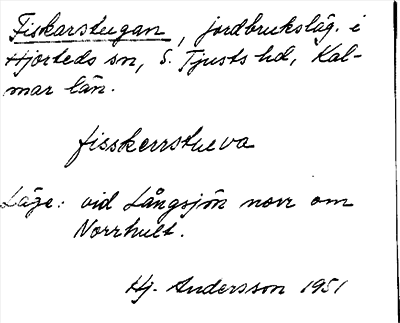 Fiskarstugan, jordbruksläg. i
Hjorteds sn, S. Tjusts hd, Kal-
mar län.
fisskerrstueva
Läge: vid Långsjön norr om
Norrhult.
Hj. Andersson 1951